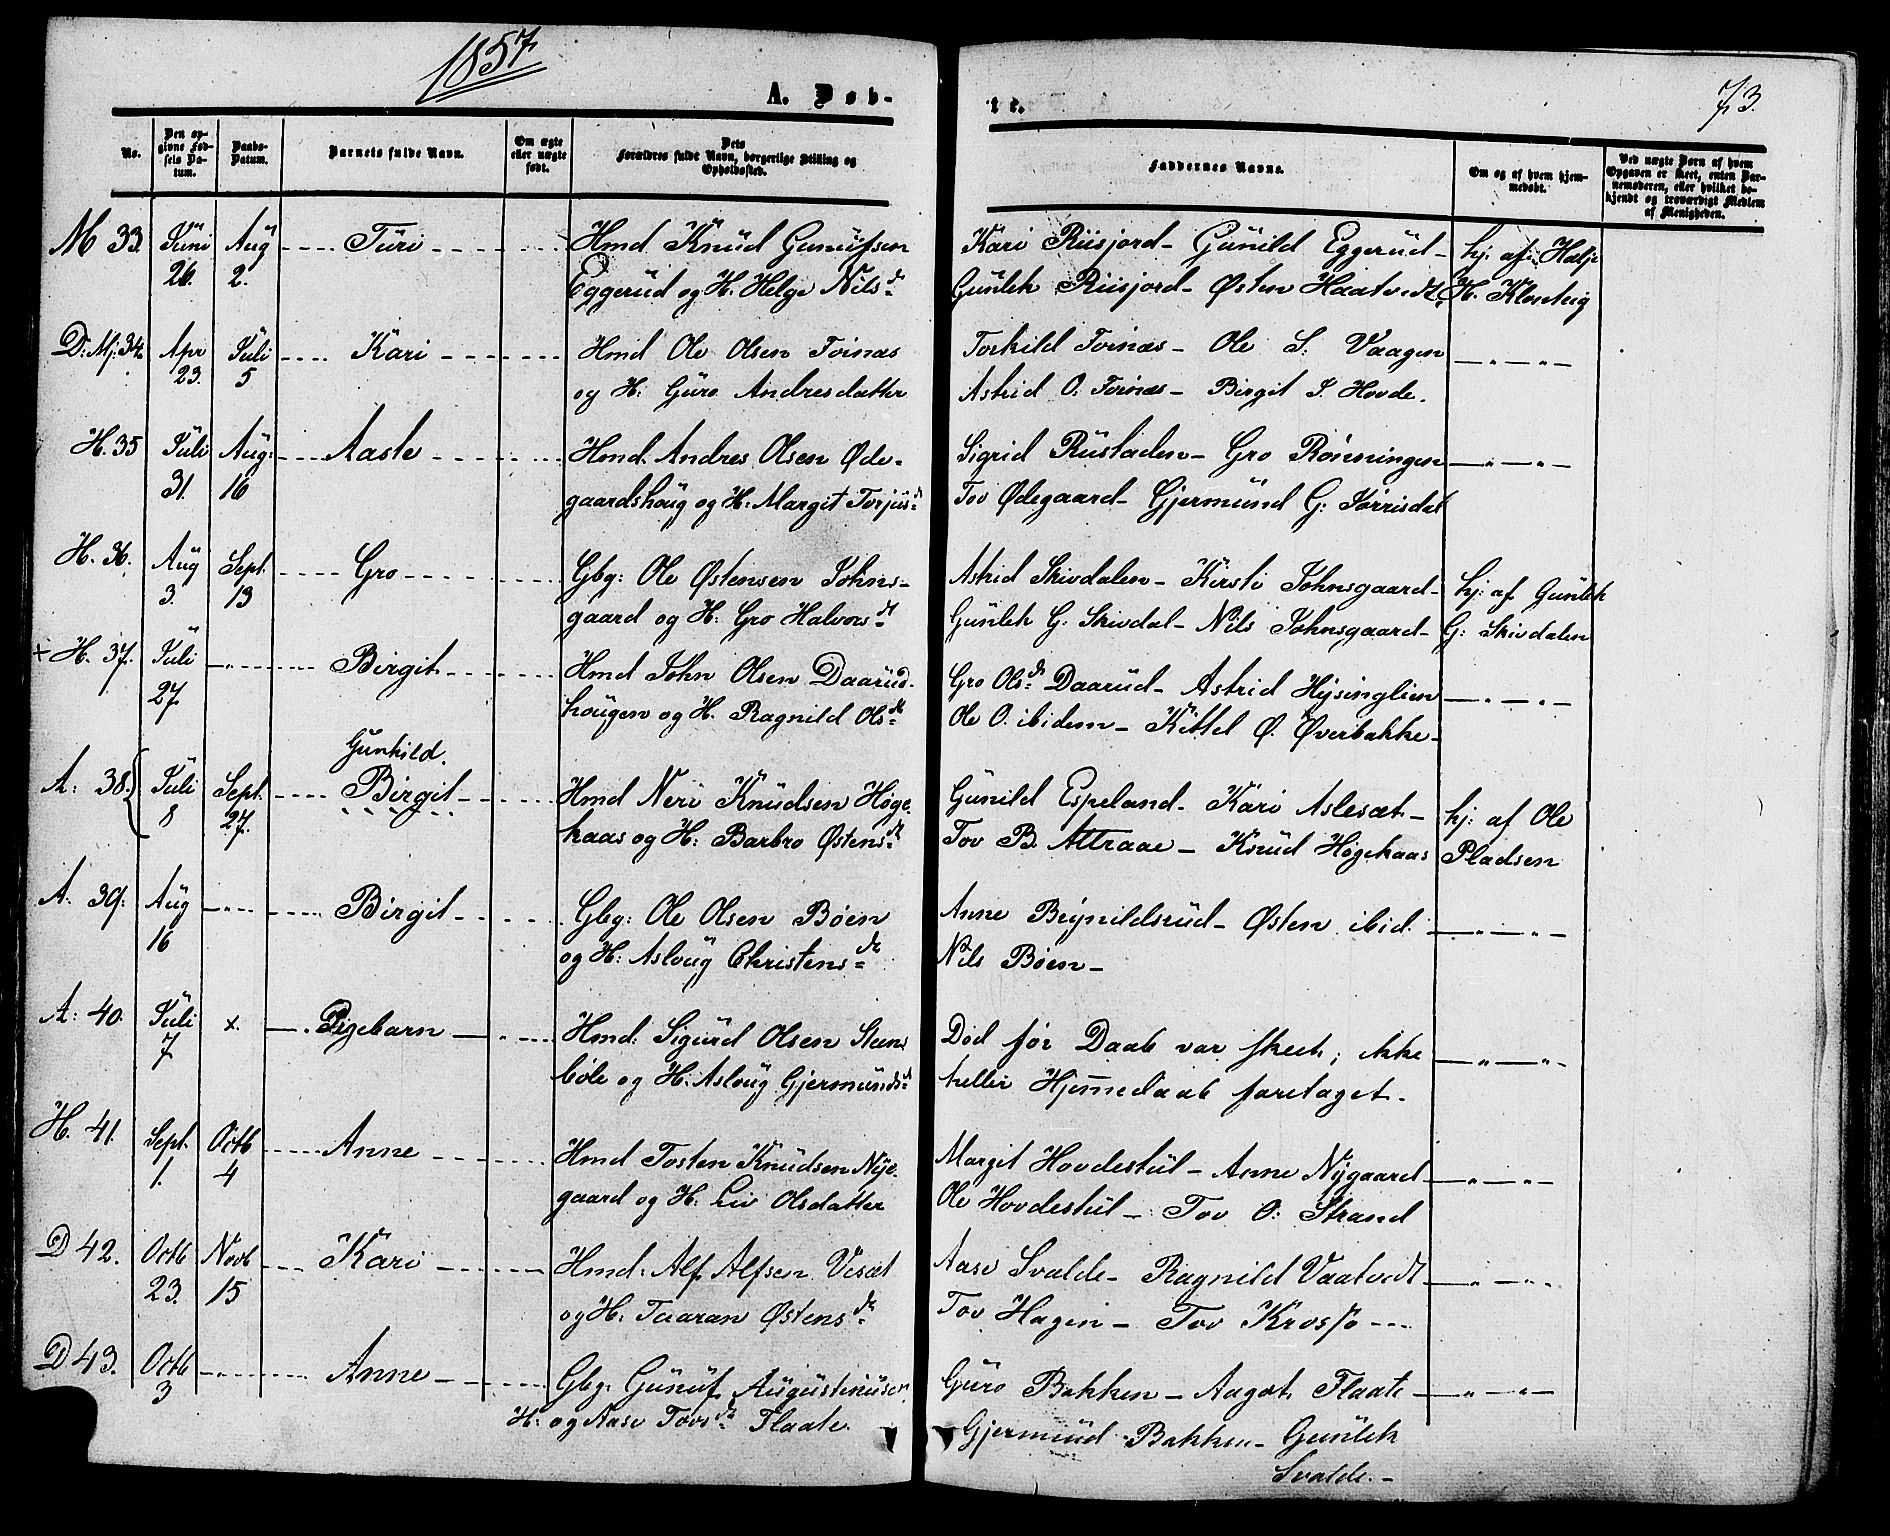 1857
A. Døb-
te.
73.
No.
Den opgivne Fødsels Datum.
Daabs-Datum.
Barnets fulde Navn.
Om ægte eller uægte født.
Dets Forældres fulde Navn, borgerlige Stilling og Opholdssted.
Faddernes Navne.
Om og af hvem hjemmedøbt.
Ved uægte Børn af hvem Opgaven er skeet, enten Barnemoderen, eller hvilket bekjendt og troværdigt Medlem af Menigheden.
M 33. Juni 26. Aug 2. Turi
Hmd Knud Gunufsen
Eggerud og H. Helge Nilsdr
Kari Riisjord - Gunild Eggerud -
Gunlek Riisjord - Østen Haatvedt
hj: af Halje
H. Klonteig
D: Mj: 34. Apr 23. Juli 5 Kari
Hmd Ole Olsen Tvinæs
og H: Guro Andresdatter
Torkild Tvinæs - Ole S: Vaagen
Astrid O: Tvinæs - Birgit S. Hovde.
H. 35 Juli 31. Aug: 16 Aaste
Hmd Andres Olsen Øde-
gaardshoug og H: Margit Torjusdr
Sigrid Rustaden - Gro Rønningen
Tov Ødegaard - Gjermund G: Jørrisdal
H. 36. Aug 3. Sept. 13 Gro
Gbg: Ole Østensen Johns-
gaard og H: Gro Halvorsdt
Astrid Skivdalen - Kirsti Johnsgaard -
Gunlek G. Skivdal - Nils Johnsgaard -
hj: af Gunlek
G: Skivdalen
+ H. 37. Juli 27. Birgit
Hmd John Olsen Daarud-
hougen og H. Ragnild Olsdt
Gro Olsdr Daarud - Astrid Hysinglien
Ole O. ibidem - Kittel Ø. Øverbakke -
Gunhild.
A: 38. Juli 8 Sept. 27. Birgit
Hmd Neri Knudsen Høge-
haas og H: Barbro Østensdt
Gunild Espeland - Kari Aslesæt -
Tov B. Attraae - Knud Høgehaas
hj: af Ole
Pladsen
A. 39. Aug 16 Birgit
Gbg: Ole Olsen Bøen
og H: Aslaug Christensdr
Anne Brynildsrud - Østen ibid.
Nils Bøen -
A: 40. Juli 7 x. Pigebarn
Hmd: Sigurd Olsen Steens
bøle og H: Aslaug Gjermundsdt
Død før Daab var skeet; ikke
heller Hjemedaab foretaget.
H. 41. Sept. 1. Octb 4 Anne
Hmd Tosten Knudsen Nye-
gaard og H: Liv Olsdatter
Margit Hovdestul - Anne Nygaard -
Ole Hovdestul - Tov O: Strand
D 42. Octb 23. Novb 15 Kari
Hmd: Alf Alfsen Vesæt
og H: Taaran Østensdr
Aase Svalde - Ragnild Vaatvedt -
Tov Hagen - Tov Krossø
D 43. Octb 3 Anne
Gbg: Gunuf Augustinusen
H: og Aase Tovsdr Flaate.
Guro Bakken - Aagot Flaate -
Gjermund Bakken - Gunlek
Svalde. -